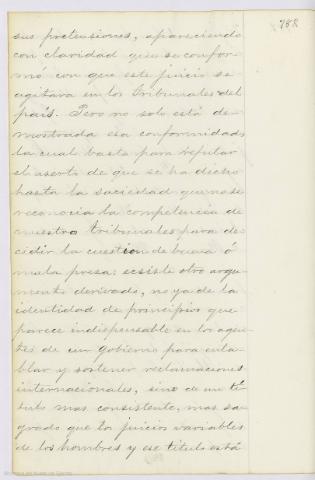 788
sus pretensiones, apareciendo
con claridad que se confor-
mó con que este juicio se
agitara en los Tribunales del
país. Pero no solo está de-
mostrada esa conformidad,
la cual basta para refutar
el aserto de que se ha dicho
hasta la saciedad que no se
reconocia la competencia de
nuestros tribunales para de-
cidir la cuestion de buena ó
mala presa: ecsiste otro argu-
mento derivado, no ya de la
identidad de principios que
parece indispensable en los agen-
tes de un gobierno para enta-
blar y sostener reclamaciones
internacionales, sino de un tí-
tulo mas consistente, mas sa-
grado que los juicios variables
de los hombres y ese titulo está